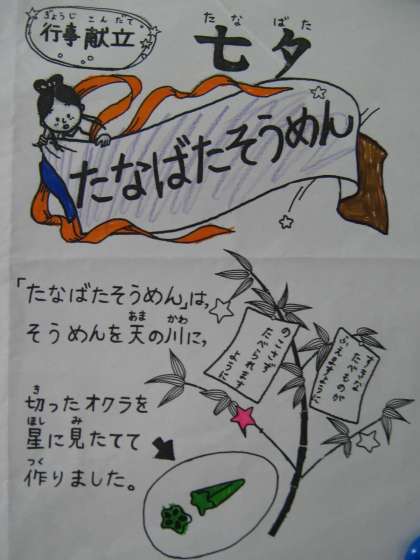 ぎょうじ こんだて
行事献立
たなばた
七夕
たなばたそうめん
「たなばたそうめん」は、
あま かわ
そうめんを天の川に、
き
切ったオクラを
ほし み
星に見たてて
つく
作りました。
のこさず
たべられます
ように
すきな
たべものが
ふえますように